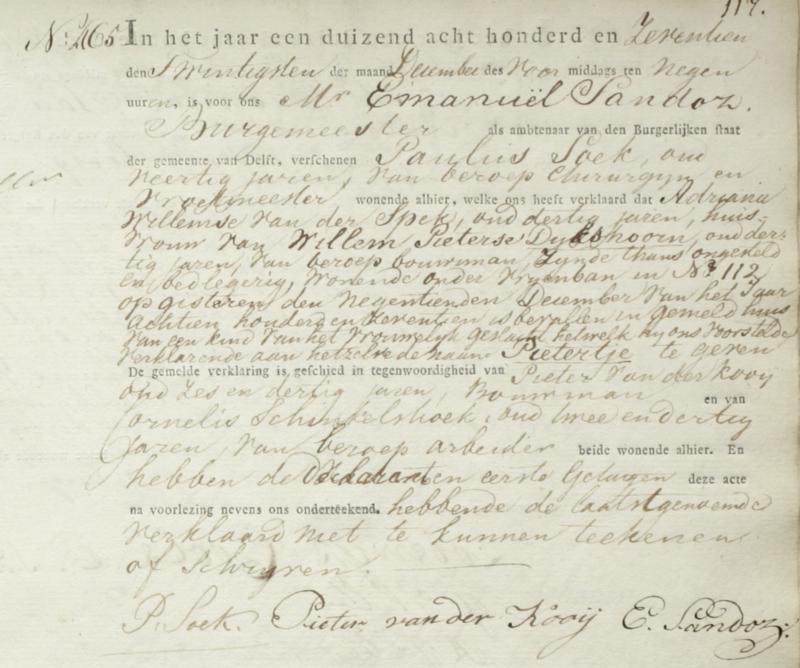 117.
N: 465 In het jaar een duizend acht honderd en Zeventien
den Twintigsten der maand December des Voor middags ten Negen
uuren, is voor ons Mr Emanuël Sandoz.
Burgemeester als ambtenaar van den Burgerlijken staat
der gemeente van Delft, verschenen Paulus Soek, oud
veertig jaren, van beroep Chirurgyn en
Vroedmeester wonende alhier, welke ons heeft verklaard dat Adriana
Willemse van der Spek, oud dertig jaren, huis-
vrouw van Willem Pieterse Dykshoorn, oud der-
tig jaren, van beroep bouwman, Zynde thans ongesteld
en bedlegerig, wonende onder Vryenban in No 112
op gisteren den Negentienden December van het Jaar
Achtien honderd en Zeventien is bevallen in gemeld huis
van een kind van het Vrouwelyk geslacht hetwelk hy ons voorstelde
verklarende aan hetzelve de naam Pietertje te geven
De gemelde verklaring is geschied in tegenwoordigheid van Pieter van der Kooy
oud Zes en dertig jaren, Bouwman en van
Cornelis Schinkelshoek, oud twee en dertig
Jaren, van beroep arbeider beide wonende alhier. En
hebben de Declarant en eerste Getuigen deze acte
na voorlezing nevens ons onderteekend. hebbende de laatstgenoemde
verklaard niet te kunnen teekenen
of Schryven.
P. Soek. Pieter van der Kooij E. Sandoz.